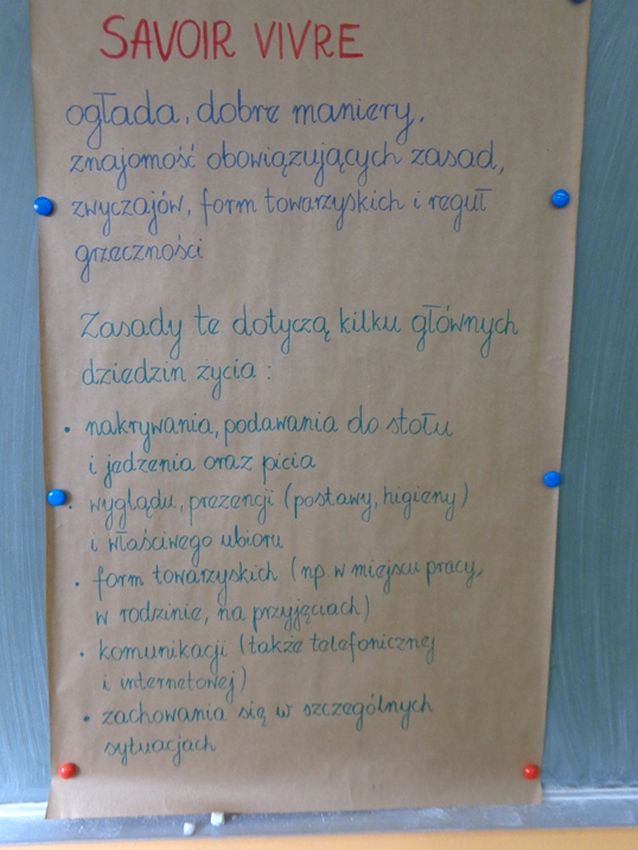 SAVOIR VIVRE
ogłada, dobre maniery,
znajomość obowiązujących zasad,
zwyczajów, form towarzyskich i reguł
grzeczności
Zasady te dotyczą kilku głównych
dziedzin życia :
• nakrywania, podawania do stołu
i jedzenia oraz picia
• wyglądu, prezencji (postawy, higieny)
i właściwego ubioru
• form towarzyskich (np. w miejscu pracy,
w rodzinie, na przyjęciach)
• komunikacji (także telefonicznej
i internetowej)
• zachowania się w szczególnych
sytuacjach